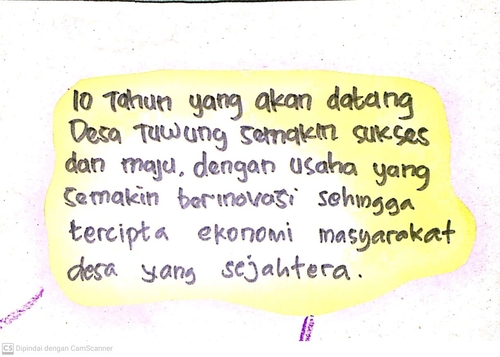 10 Tahun yang akan datang
Desa Tuwung semakin sukses
dan maju, dengan usaha yang
semakin berinovasi sehingga
tercipta ekonomi masyarakat
desa yang sejahtera.
CS Dipindai dengan CamScanner